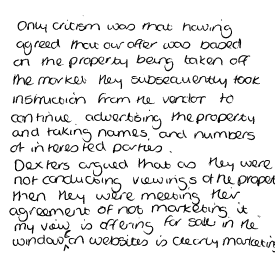 Only critism was that having
agreed that our offer was based
on the property being taken off
the market they subsequently took
instruction from the vendor to
continue advertising the property
and taking names and numbers
of interested parties.
Dexters argued that as they were
not conducting viewings of the propet
then they were meeting their
agreement of not marketing it
my view is offering for sale in the
window on websites is clearly marketing